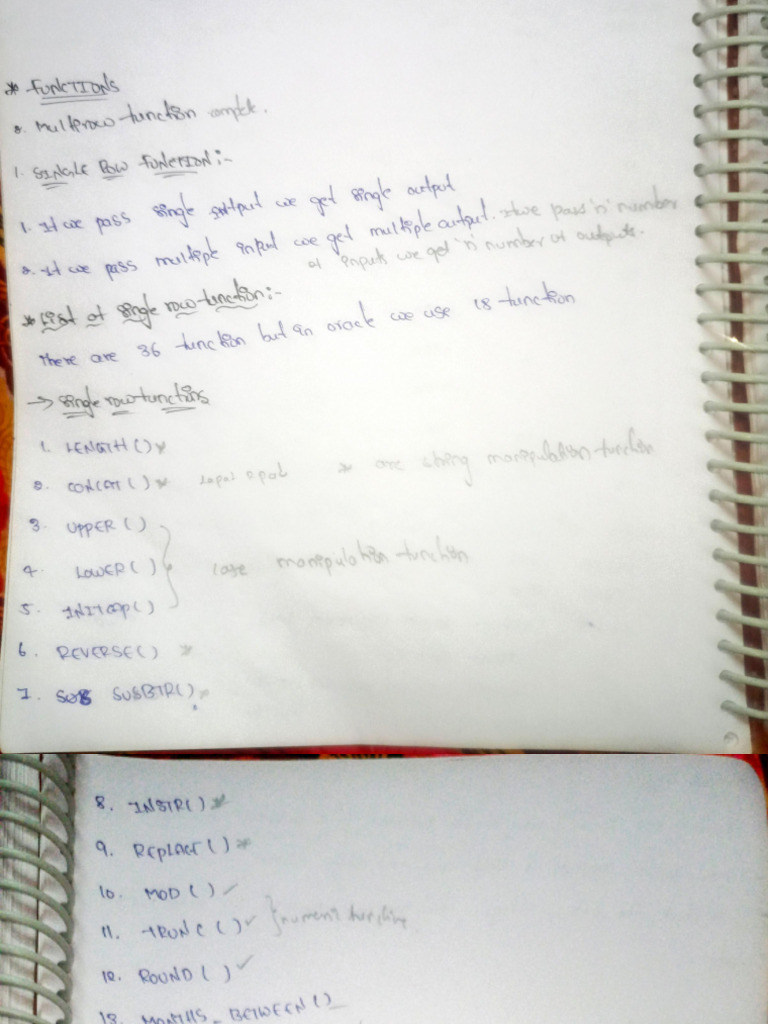 * FUNCTIONS
2. Multirow function
1. SINGLE ROW FUNCTION :-
1. If we pass single we get single output
2. If we pass multiple input we get multiple output. If we pass 'n' number
of inputs we get 'n' number of outputs.
* List of single row function :-
There are 36 function but in oracle we use 18 function
→ single row functions
1. LENGTH() *
2. CONCAT() * * are string manipulation function
3. UPPER()
4. LOWER() } case manipulation function
5. INITCAP()
6. REVERSE() *
7. SUBSTR() *
8. INSTR() *
9. REPLACE() *
10. MOD() ✓
11. TRUNC() ✓ } numeric function
12. ROUND() ✓
13. MONTHS_BETWEEN()